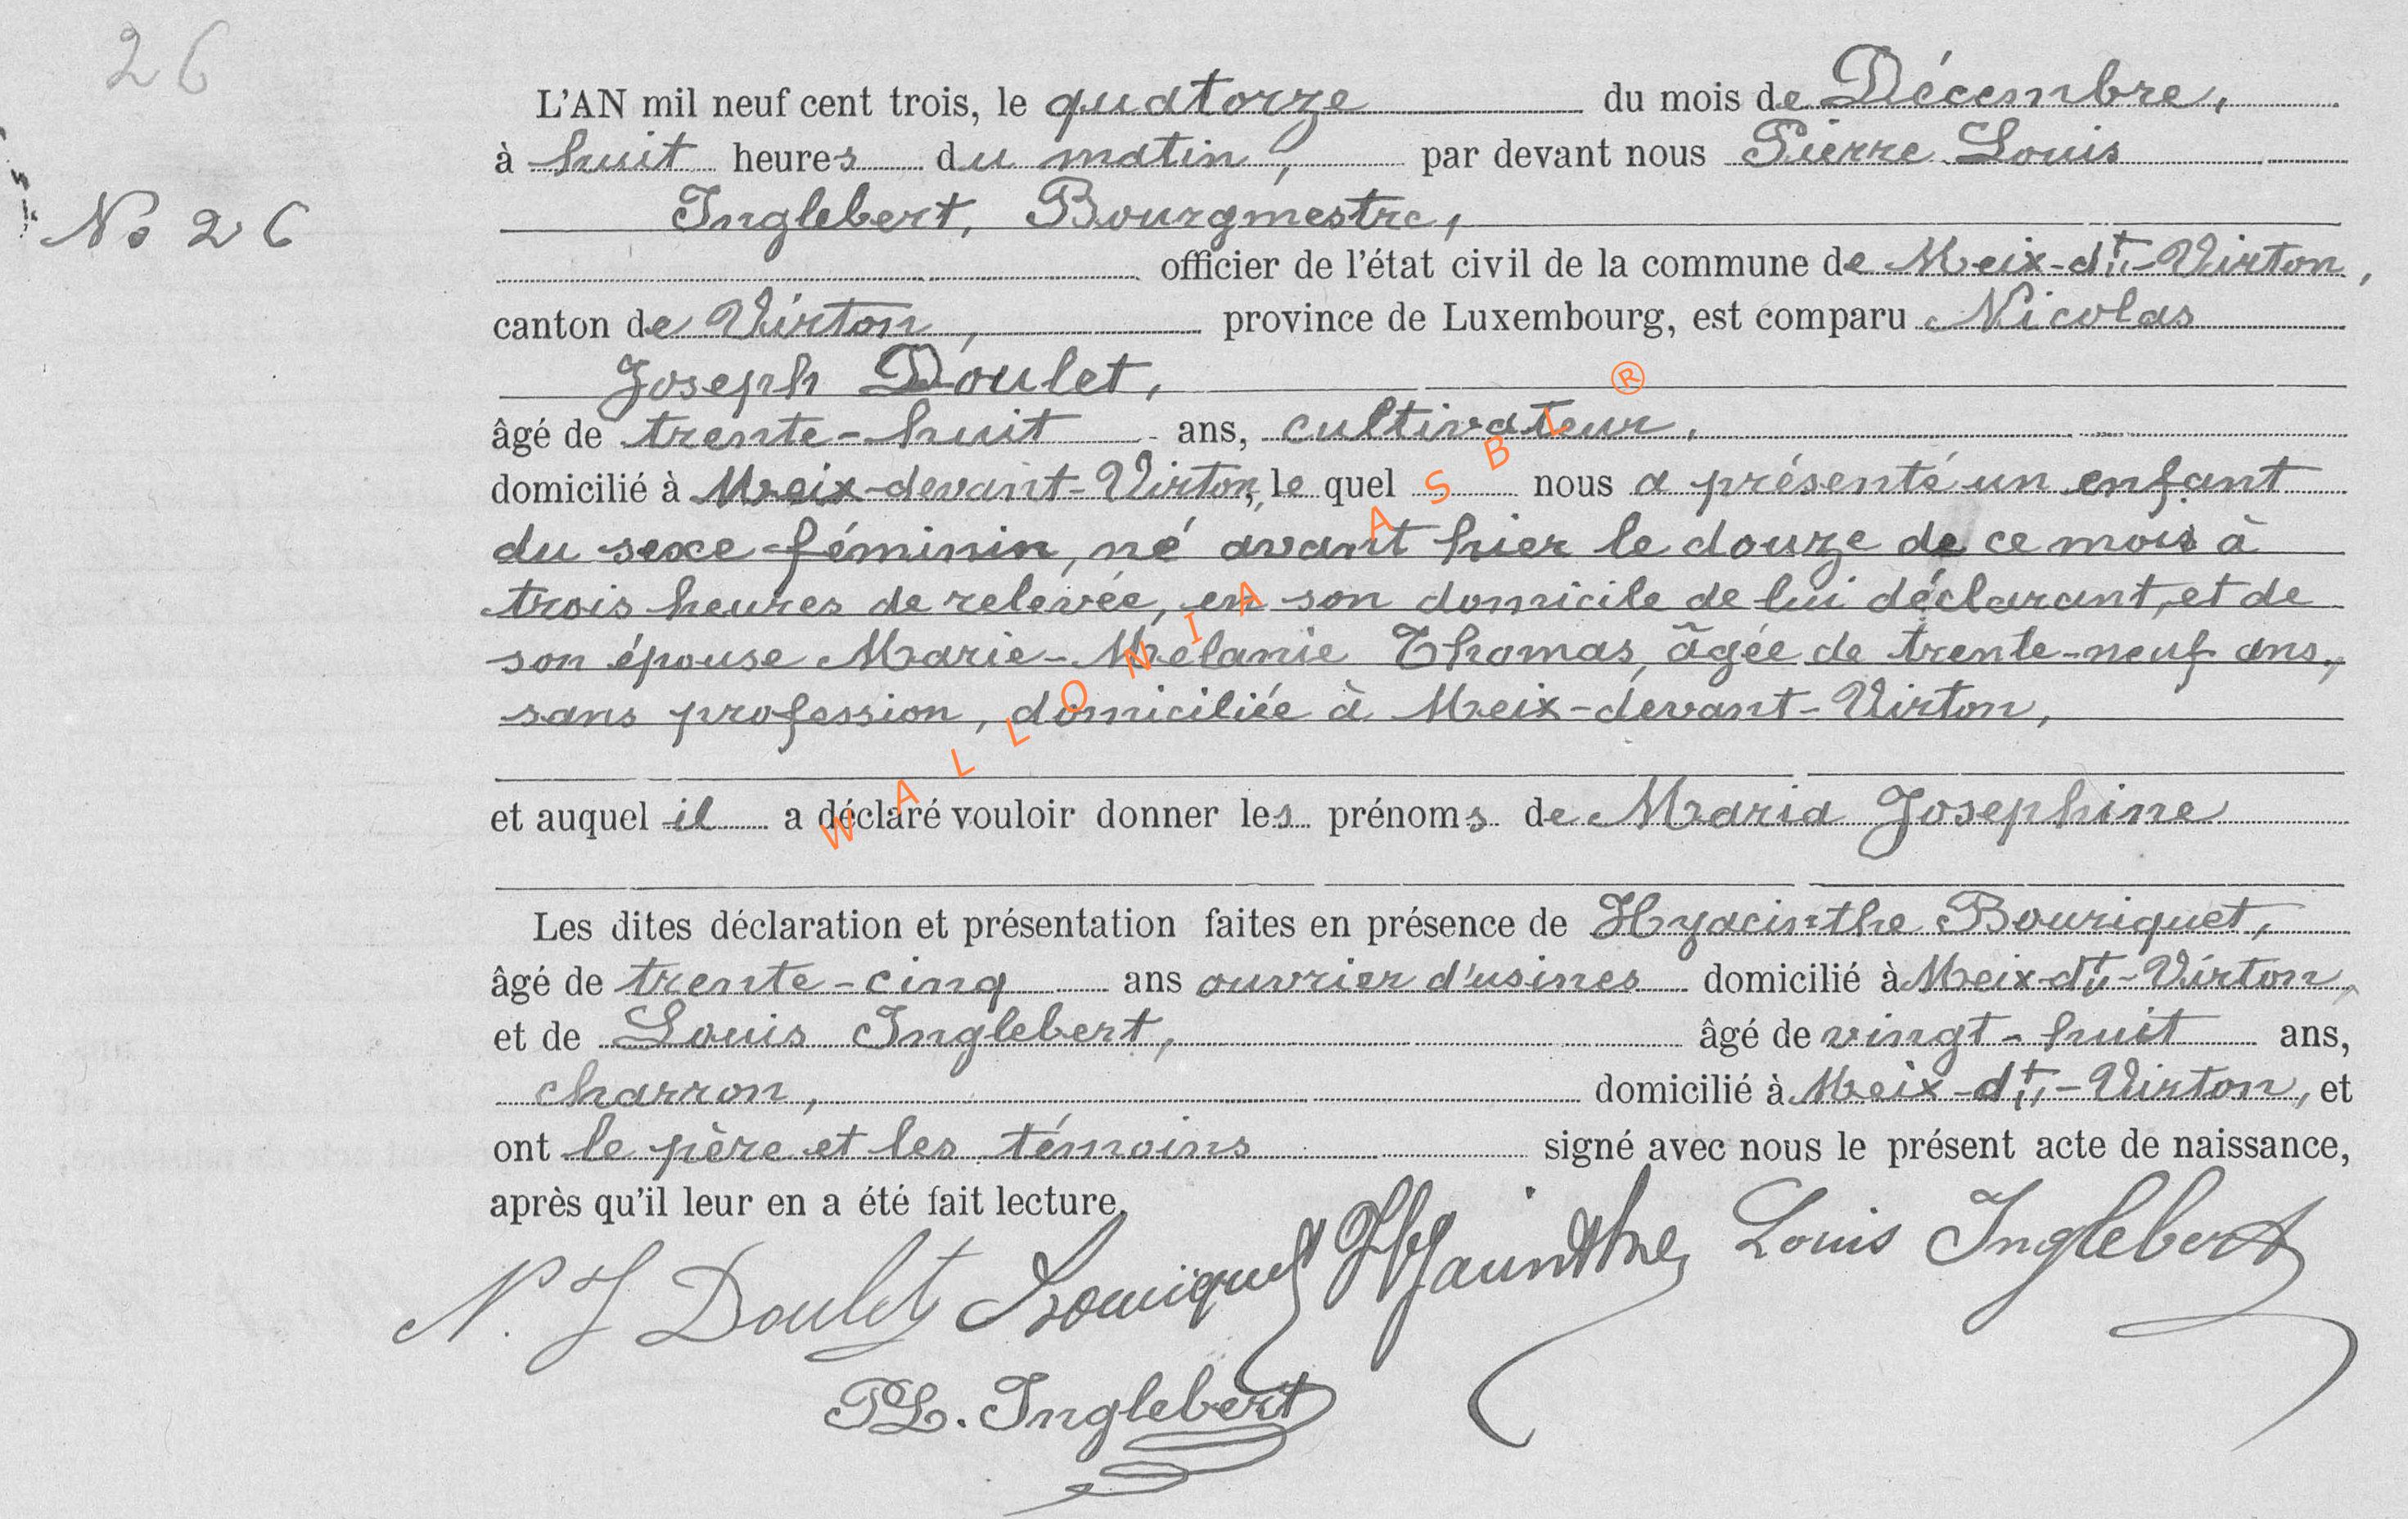 26
L'AN mil neuf cent trois, le quatorze du mois de Décembre,
à huit heures du matin, par devant nous Pierre Louis
No 26
Inglebert, Bourgmestre,
officier de l'état civil de la commune de Meix-dt-Virton,
canton de Virton, province de Luxembourg, est comparu Nicolas
Joseph Doulet,
âgé de trente-huit ans, cultivateur,
domicilié à Meix-devant-Virton, le quel nous a présenté un enfant
du sexe féminin, né avant hier le douze de ce mois à
trois heures de relevée, en son domicile de lui déclarant, et de
son épouse Marie-Mélanie Thomas, âgée de trente-neuf ans,
sans profession, domiciliée à Meix-devant-Virton,
et auquel il a déclaré vouloir donner les prénoms de Maria Josephine
Les dites déclaration et présentation faites en présence de Hyacinthe Bouriquet,
âgé de trente-cinq ans ouvrier d'usines domicilié à Meix-dt-Virton,
et de Louis Inglebert, âgé de vingt-huit ans,
charron, domicilié à Meix-dt-Virton, et
ont le père et les témoins signé avec nous le présent acte de naissance,
après qu'il leur en a été fait lecture.
N. J Doulet Bouriquet Hyacinthe Louis Inglebert
PL. Inglebert
WALLONIA ASBL ®